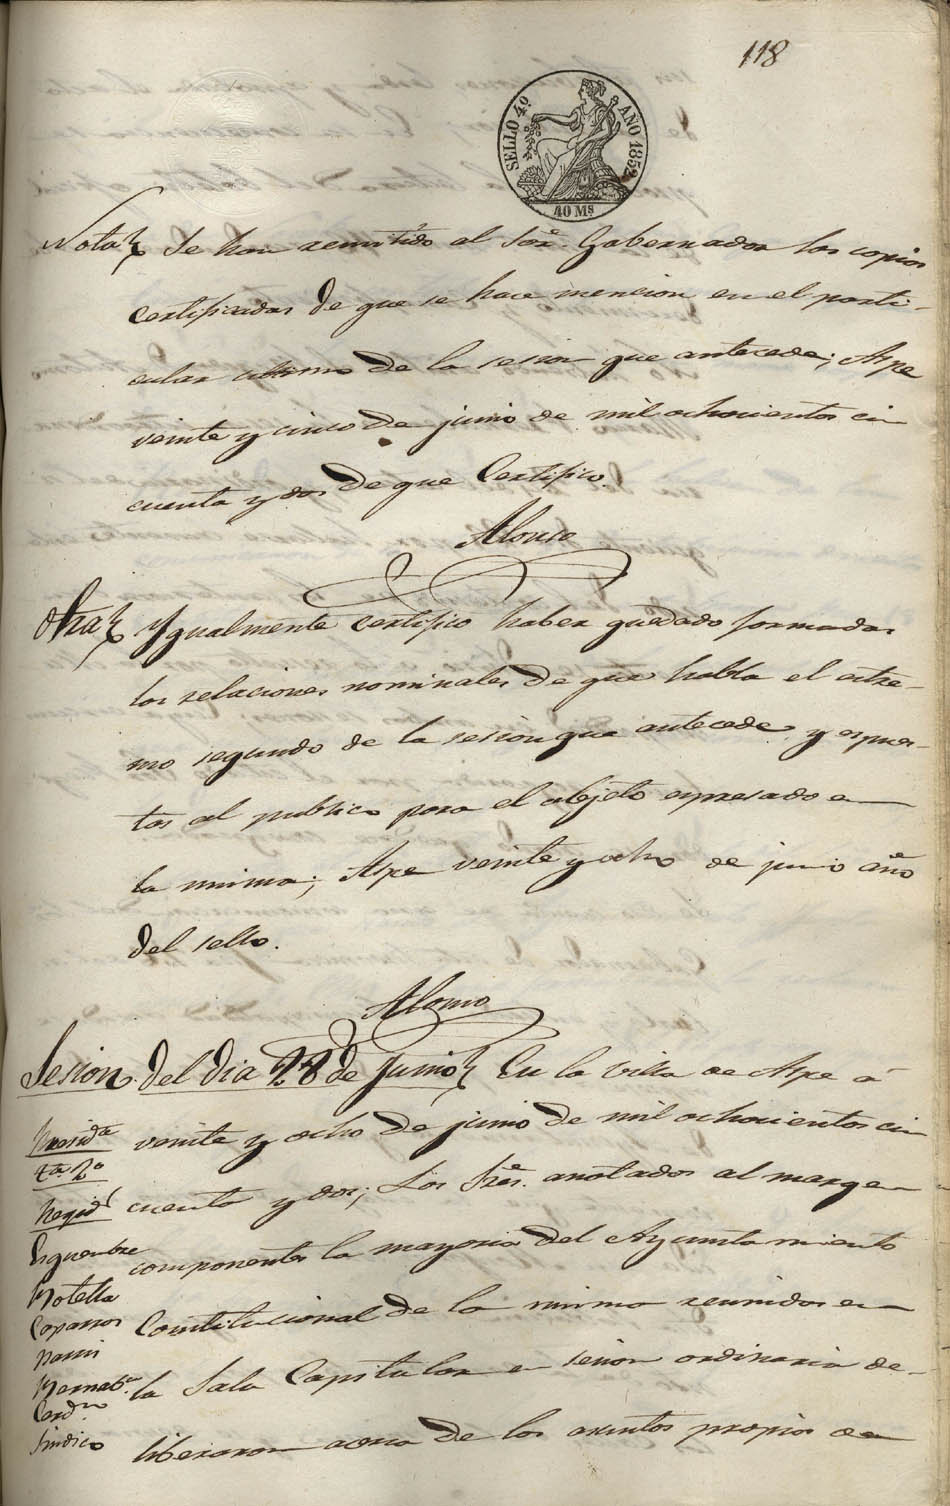 118
SELLO 4º AÑO 1852
40 Ms
Nota Se han remitido al Sor. Gobernador las copias
certificadas de que se hace mencion en el parti-
cular ultimo de la sesion que antecede; Aspe
veinte y cinco de junio de mil ochocientos cin
cuenta y dos de que Certifico.
Alonso
Otra Ygualmente certifico haber quedado formadas
las relaciones nominales de que habla el estre-
mo segundo de la sesion que antecede y espues-
tas al publico para el objeto espresado en
la misma; Aspe veinte y ocho de junio año
del sello.
Alonso
Sesion del dia 28 de Junio En la villa de Aspe á
veinte y ocho de junio de mil ochocientos cin
cuenta y dos; Los Sres. anotados al margen
componentes la mayoria del Ayuntamiento
Constitucional de la misma reunidos en
la Sala Capitular en sesion ordinaria de-
liberaron acerca de los asuntos propios de
Presidte
Tte 2º
Regid
Botella
Caparros
Pavin
Bernabe
Cerdn
Sindico